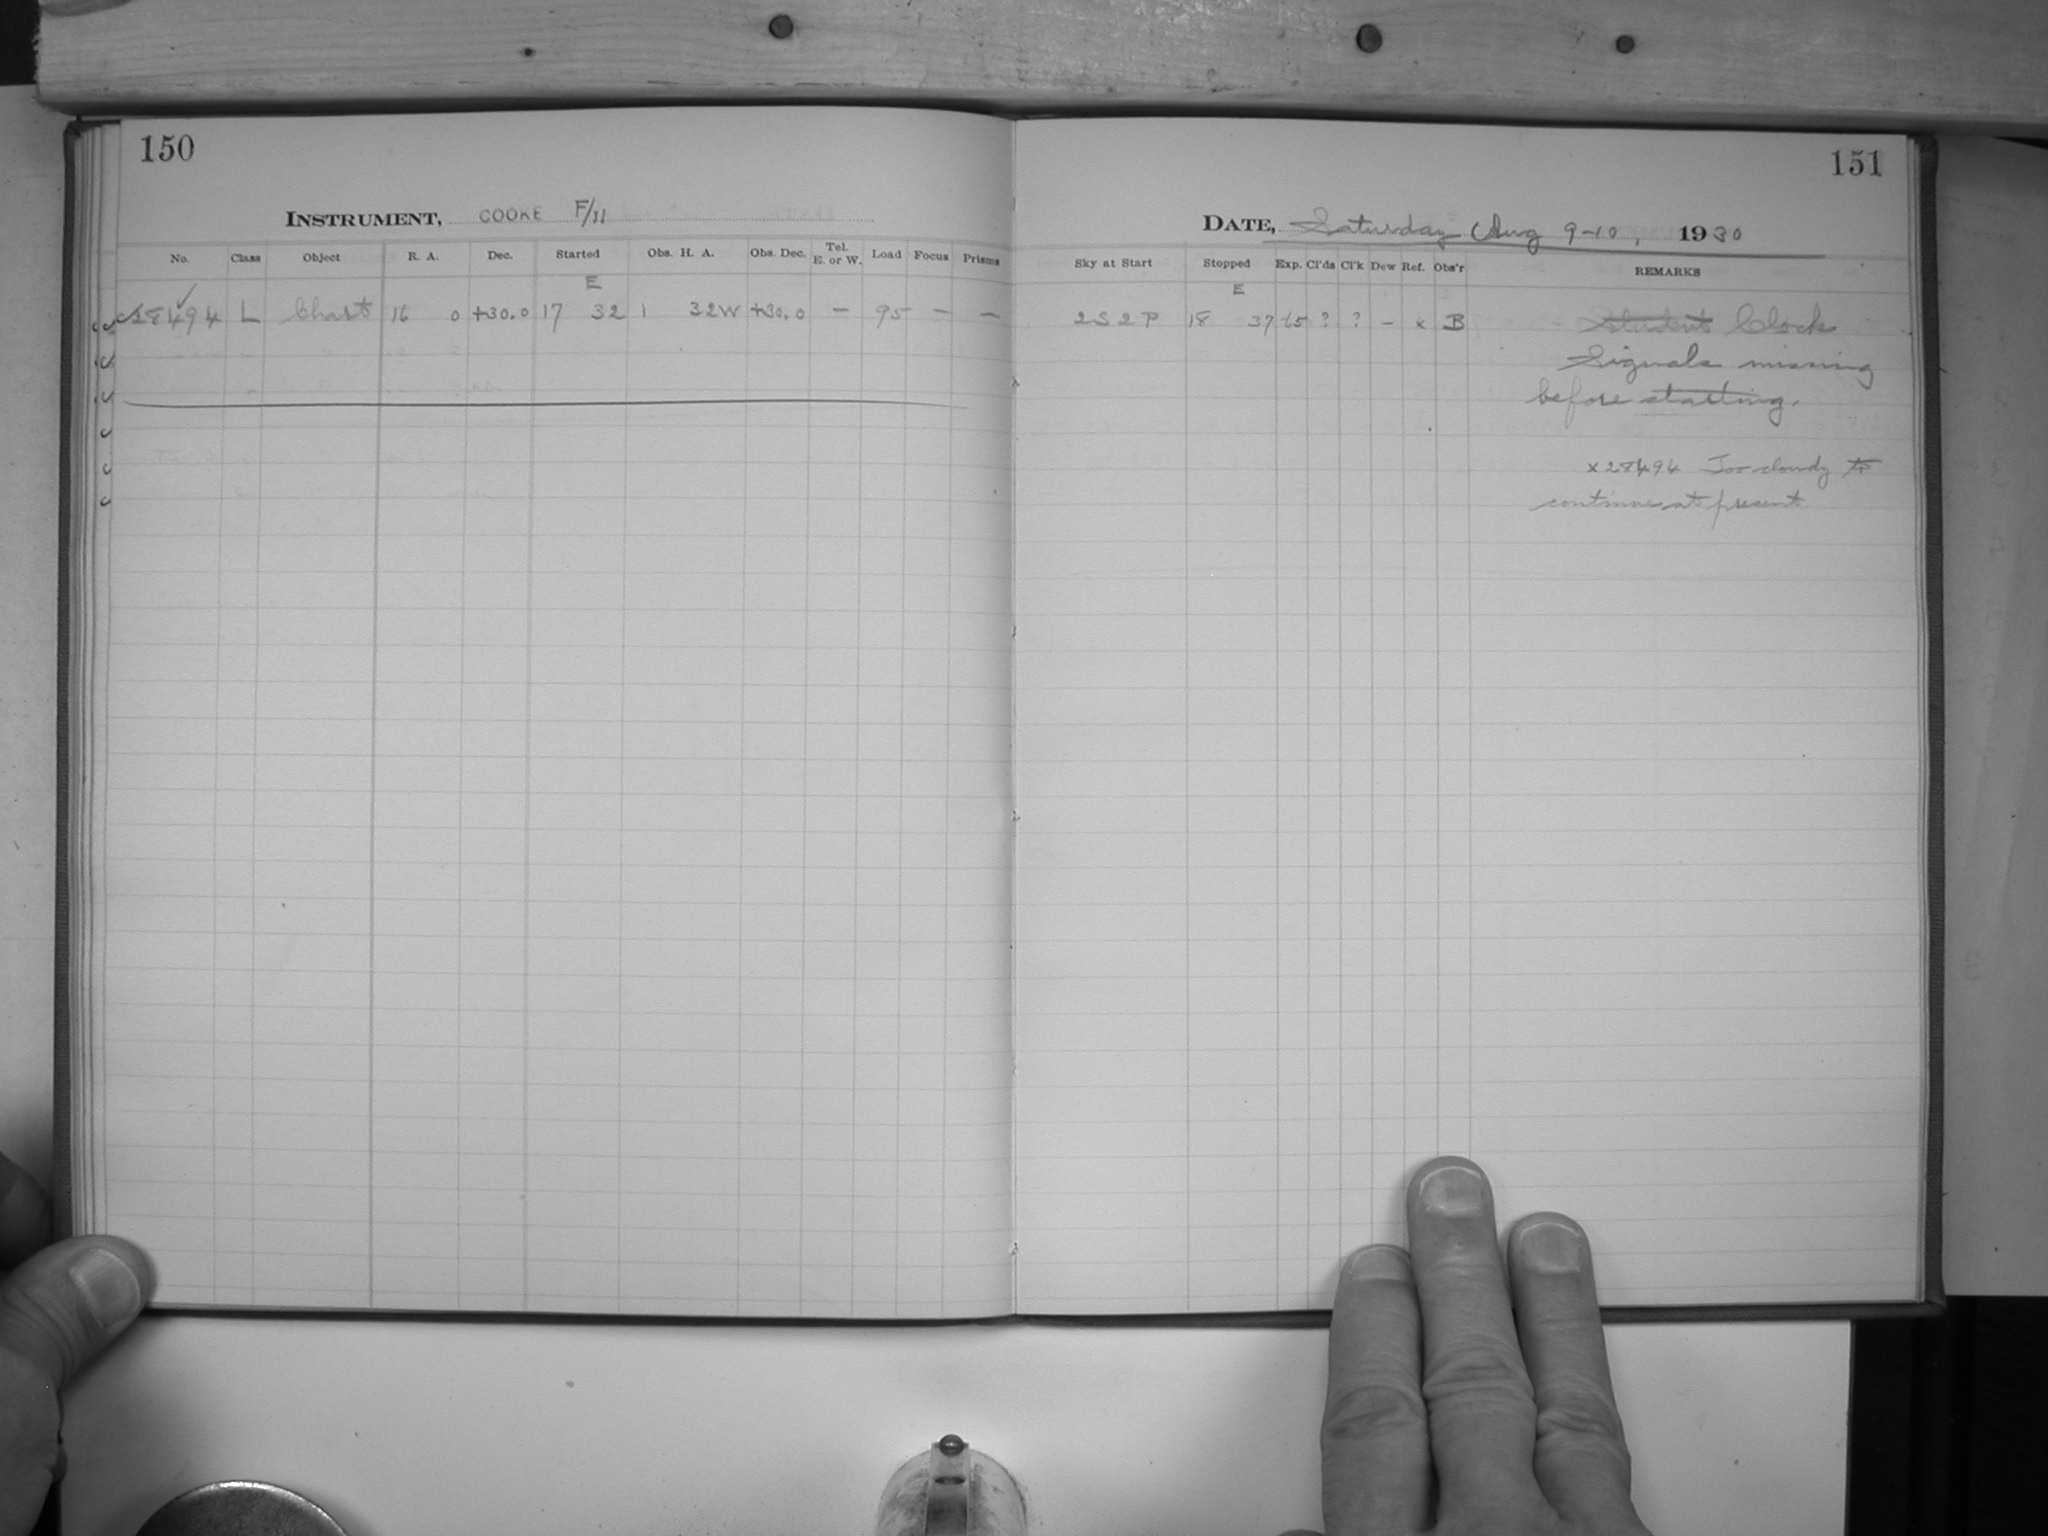 150
INSTRUMENT, COOKE F/11
No. Class Object R. A. Dec. Started Obs. H. A. Obs. Dec. Tel. E. or W. Load Focus Prisms
E
28494 L Chart 16 0 +30.0 17 32 1 32W +30.0 — 95 — —
151
DATE, Saturday Aug 9-10, 1930
Sky at Start Stopped Exp. Cl'ds Cl'k Dew Ref. Obs'r REMARKS
E
2 S 2 P 18 37 65 ? ? — x B Student Clock
Signals missing
before starting.
x 28494 Too cloudy to
continue at present